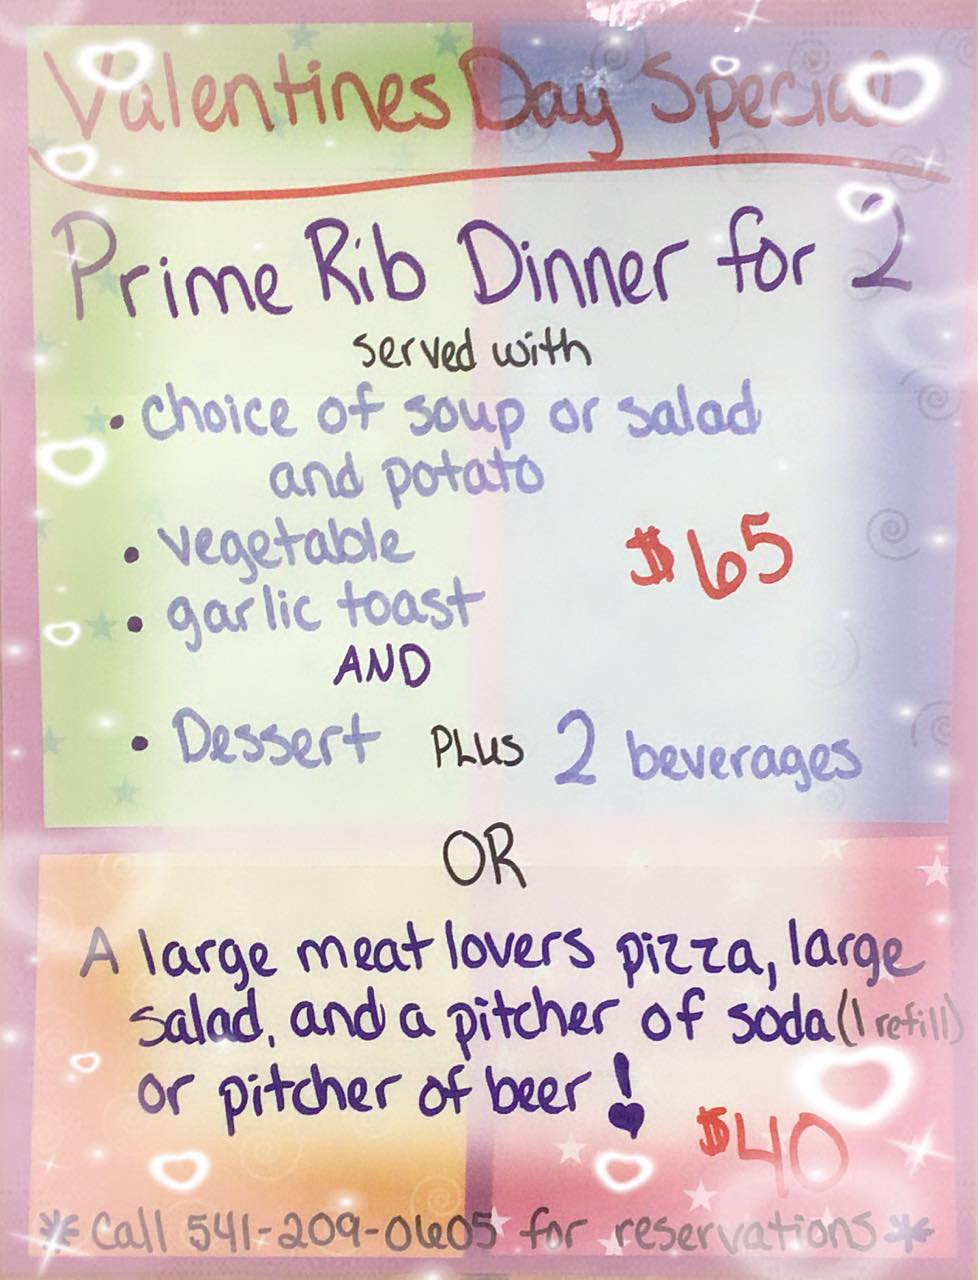 Valentines Day Special
Prime Rib Dinner for 2
served with
• choice of soup or salad
and potato
• vegetable
$65
• garlic toast
AND
• Dessert PLUS 2 beverages
OR
A large meat lovers pizza, large
salad, and a pitcher of soda (1 refill)
or pitcher of beer!
$40
* Call 541-209-0605 for reservations *